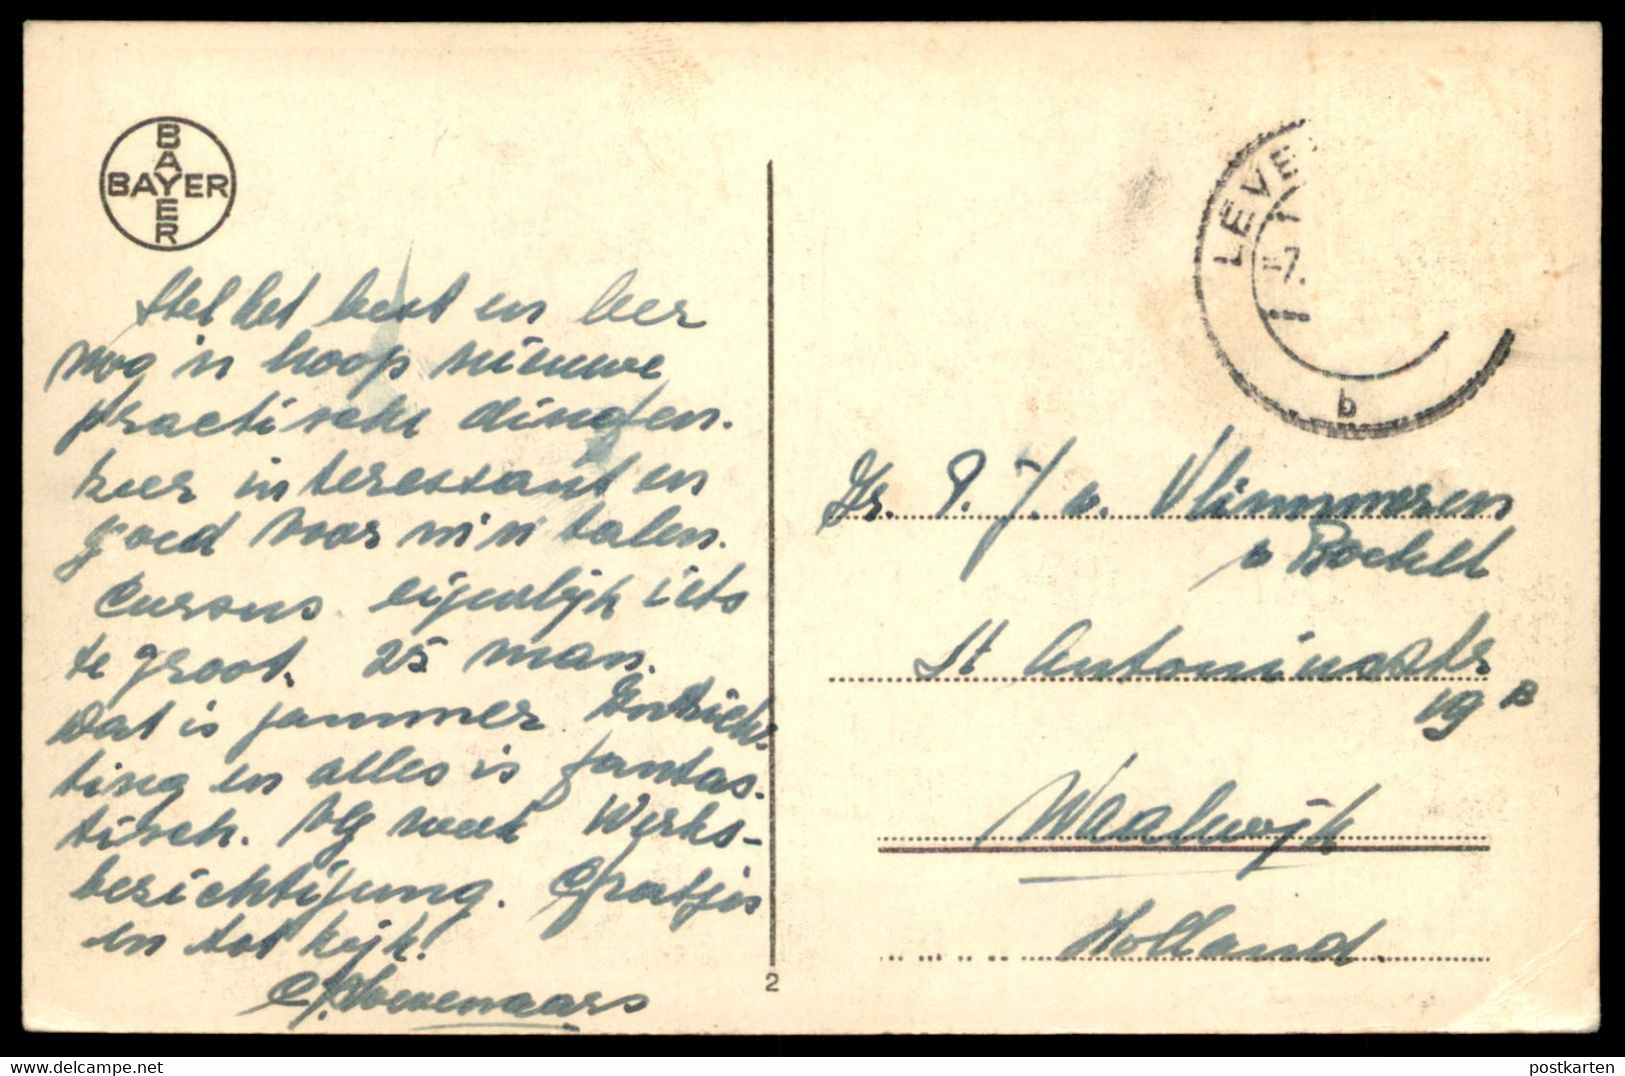 BAYER
BAYER
Stel het best en leer
nog 'n hoop nieuwe
practische dingen.
Zeer interessant en
goed voor m'n talen.
Cursus eigenlijk iets
te groot. 25 man.
Dat is jammer Inrich-
ting en alles is fantas-
tisch. Werks-
besichtigung. Gratjes
en tot kijk!
2
LEVE
-7.
b
P. J. v. Vlimmeren
St Antoniusstr
19 B
Waalwijk
Holland.
delcampe.net
postkarten